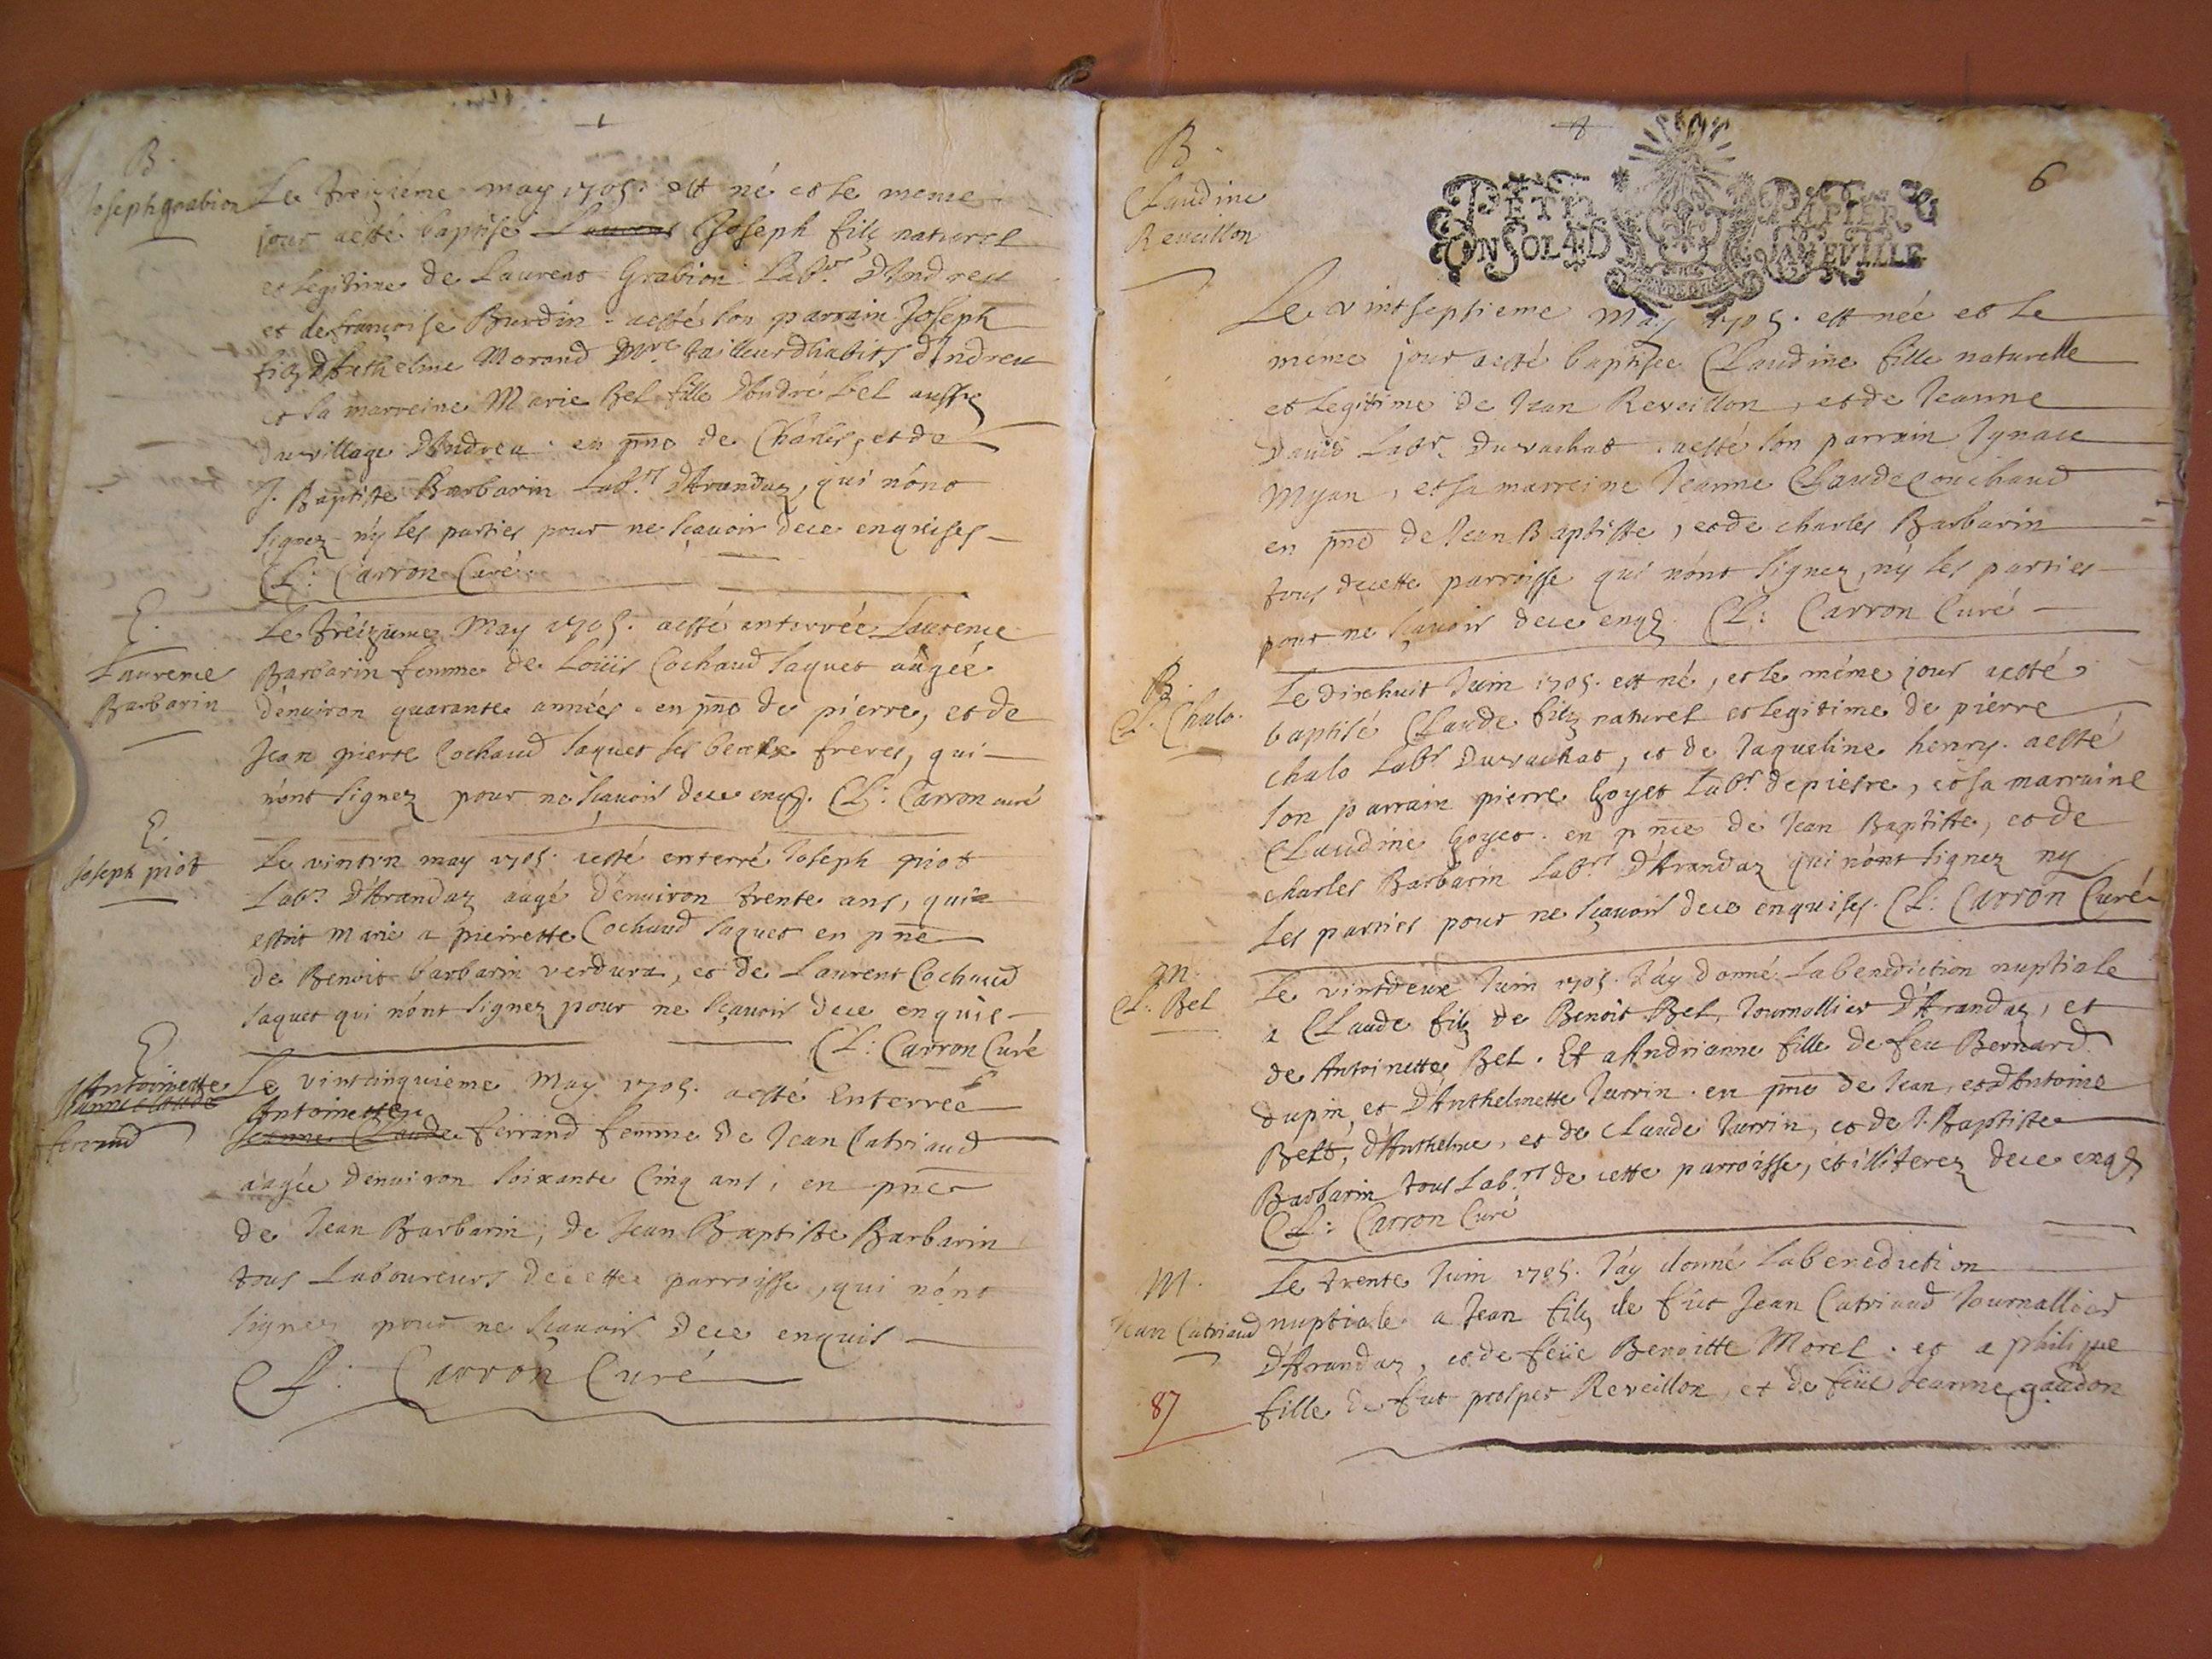 B.
Joseph grabion
Le treizième may 1705. est né et le meme
jour aesté baptisé Laurent Joseph filz naturel
et legitime de Laurent Grabion Labr. D'Indreu
et de françoise Burdin - aesté son parrain Joseph
filz D'Anthelme Morand Mre tailleur d'habits d'Indreu
et sa marreine Marie Bel fille D'André bel aussy
du village D'Indreu. en pnce de Charles, et de
J. Baptiste Barbarin Labrs D'Arandaz, qui n'ont
signez ny les parties pour ne sçavoir dece enquises
Cl: Carron Curé.
E.
Laurence
Barbarin
Le treizieme May 1705. aesté enterrée Laurence
Barbarin femme de Loüis Cochaud Jaquet aagée
d'environ quarante années. en pnce de pierre, et de
Jean pierre Cochaud Jaquet ses freres, qui
n'ont signez pour ne sçavoir dece enq. Cl: Carron curé
E.
Joseph piot
Le vintun may 1705. aesté enterré Joseph piot
Labr. D'Arandaz aagé d'environ trente ans, qui
estoit marié a pierrette Cochaud Jaquet en pnce
de Benoit barbarin verdura, et de Laurent Cochaud
Jaquet qui n'ont signez pour ne sçavoir dece enquis
Cl: Carron Curé
E.
Antoinette
Jeanne claude
ferrand
Le vintcinquieme May 1705. aesté Enterrée
Antoinette
Jeanne Claude ferrand femme de Jean Catriaud
aagée d'environ soixante Cinq ans, en pnce
de Jean Barbarin, de Jean Baptiste Barbarin
tous Laboureurs de cette parroisse, qui n'ont
signez pour ne sçavoir dece enquis
Cl: Carron Curé
8
6
PETIT PAPIER
UN SOL 4 D LA FEUILLE
B.
Claudine
Reveillon
Le vintseptieme May 1705. est née et le
meme jour aesté baptisee Claudine fille naturelle
et Legitime de Jean Reveillon, et de Jeanne
David Labr. Duvachat. aesté son parrain Ignace
Myan, et sa marreine Jeanne Claude Couchaud
en pnce de Jean Baptiste, et de charles Barbarin
tous decette parroisse qui n'ont signez, ny les parties
pour ne sçavoir dece enq. Cl: Carron Curé
B.
Cl. Chalo.
Le dixhuit Juin 1705. est né, et le méme jour aesté
baptisé Claude filz naturel et legitime de pierre
chalo Labr Duvachat, et de Jaqueline henry. aesté
son parrain pierre Goyet Labr de pierre, et sa marraine
Claudine Goyet. en pnce de Jean Baptiste, et de
charles Barbarin Labrs D'Arandaz qui n'ont signez ny
les parties pour ne sçavoir dece enquises. Cl: Carron Curé
M.
Cl. Bel
Le vintdeux Juin 1705. J'ay donné La benediction nuptiale
a Claude filz de Benoit Bel, Journallier D'Arandaz, et
de Antoinette Bel. Et a Andrianne fille de feu Bernard
dupin, et D'Anthelmette Jurrin. en pnce de Jean, et d'Antoine
Bels, d'Anthelme, et de Claude Jurrin, et de J. Baptiste
Barbarin tous Labrs de cette parroisse, et illiterez dece enq
Cl: Carron Curé
M.
Jean Catriaud
Le trente Juin 1705. J'ay donné La benediction
nuptiale a Jean filz de fut Jean Catriaud Journallier
d'Arandaz, et de feüe Benoitte Morel. et a philippe
fille de fut prosper Reveillon, et de feüe Jeanne gaudon
87